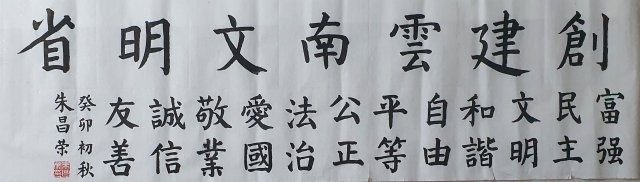 創建雲南文明省
富强
民主
文明
和諧
自由
平等
公正
法治
愛國
敬業
誠信
友善
癸卯初秋
朱昌荣